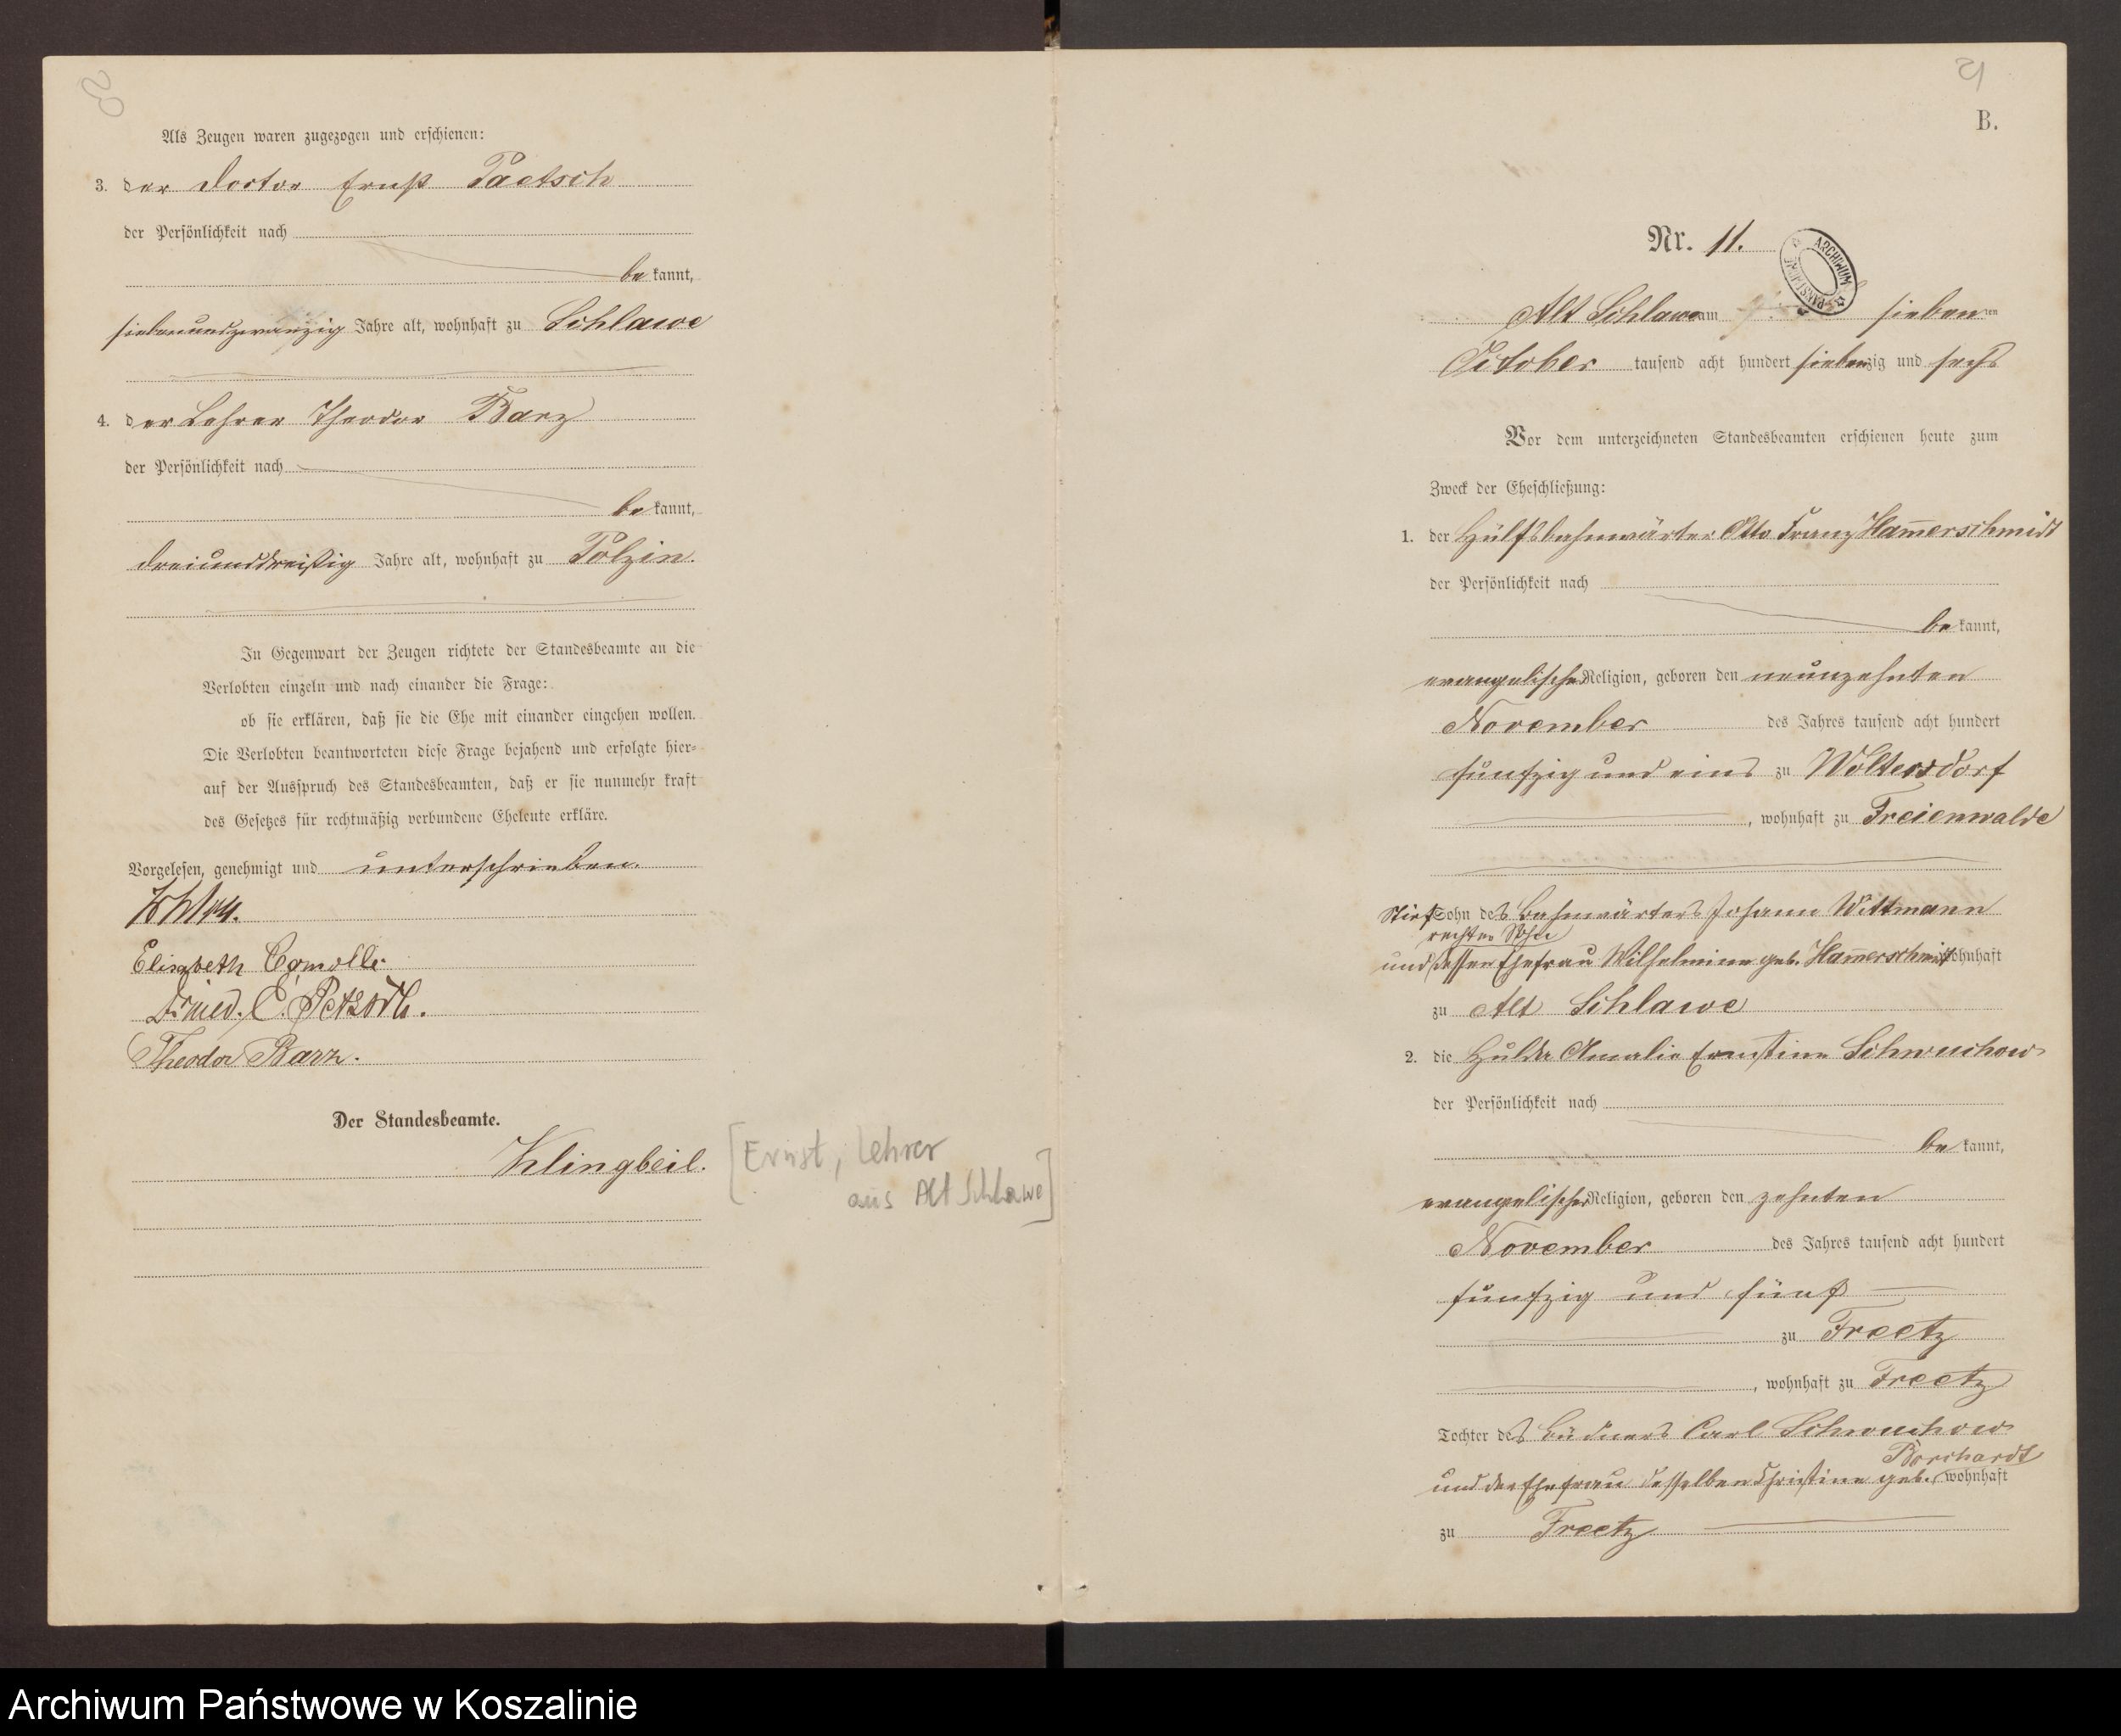 20
Als Zeugen waren zugezogen und erschienen:
3. der Doctor Ernst Paetsch
der Persönlichkeit nach
bekannt,
siebenundzwanzig Jahre alt, wohnhaft zu Schlawe
4. der Lehrer Theodor Barz
der Persönlichkeit nach
bekannt,
dreiunddreißig Jahre alt, wohnhaft zu Polzin.
In Gegenwart der Zeugen richtete der Standesbeamte an die
Verlobten einzeln und nach einander die Frage:
ob sie erklären, daß sie die Ehe mit einander eingehen wollen.
Die Verlobten beantworteten diese Frage bejahend und erfolgte hier-
auf der Ausspruch des Standesbeamten, daß er sie nunmehr kraft
des Gesetzes für rechtmäßig verbundene Eheleute erkläre.
Vorgelesen, genehmigt und unterschrieben.
Elisabeth
Dr med. E.
Theodor Barz.
Der Standesbeamte.
Klingbeil.
[Ernst, Lehrer
aus Alt Schlawe]
21
B.
Nr. 11.
ARCHIWUM
Alt Schlawe am sieben ten
October tausend acht hundert siebenzig und sechs
Vor dem unterzeichneten Standesbeamten erschienen heute zum
Zweck der Eheschließung:
1. der Hülfsbahnwärter Otto Franz Ham̄erschmidt
der Persönlichkeit nach
bekannt,
evangelischer Religion, geboren den neunzehnten
November des Jahres tausend acht hundert
fünfzig und eins zu Woltersdorf
, wohnhaft zu Freienwalde
Stief Sohn des Bahnwärters Johann Wittmann
rechter Sohn
und dessen Ehefrau Wilhelmine geb. Ham̄erschmidt wohnhaft
zu Alt Schlawe
2. die Hulda Amalie Ernstine Schwuchow
der Persönlichkeit nach
bekannt,
evangelischer Religion, geboren den zehnten
November des Jahres tausend acht hundert
fünfzig und fünf
zu Freetz
, wohnhaft zu Freetz
Tochter des Büdners Carl Schwuchow
Borchardt
und der Ehefrau desselben Christine geb. wohnhaft
zu Freetz
Archiwum Państwowe w Koszalinie